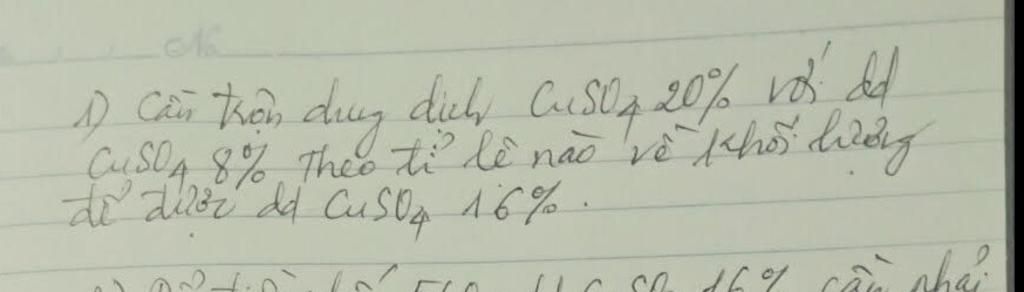 1) Cần trộn dung dịch CuSO4 20% với dd
CuSO4 8% Theo tỉ lệ nào về khối lượng
để được dd CuSO4 16%.
16% cần phải